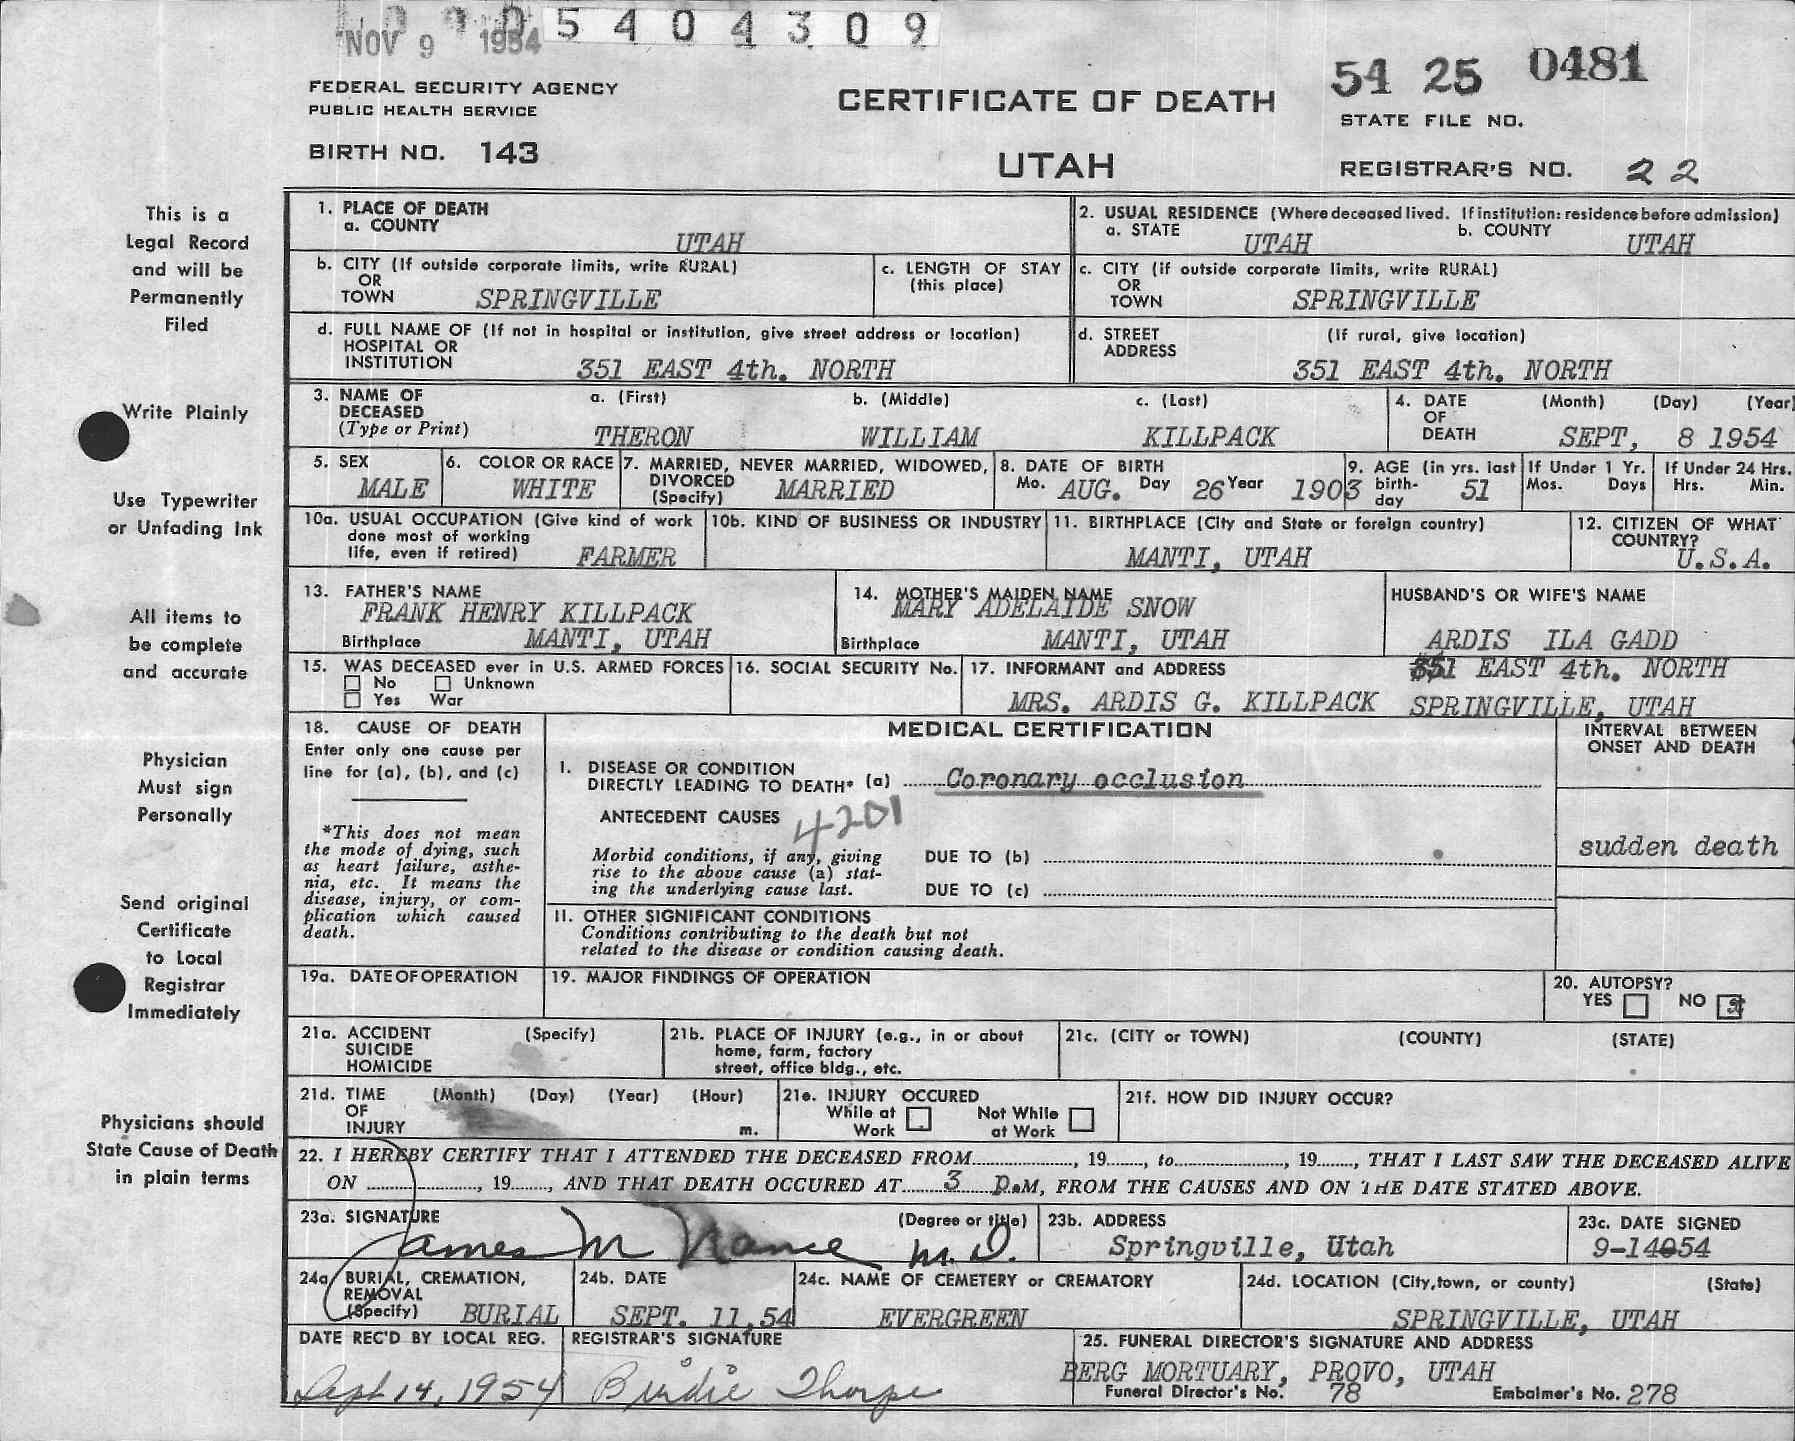 NOV 9 1954
5 4 0 4 3 0 9
54 25 0481
FEDERAL SECURITY AGENCY
PUBLIC HEALTH SERVICE
CERTIFICATE OF DEATH
STATE FILE NO.
BIRTH NO. 143
UTAH
REGISTRAR'S NO. 22
This is a
Legal Record
and will be
Permanently
Filed
Write Plainly
Use Typewriter
or Unfading Ink
All items to
be complete
and accurate
Physician
Must sign
Personally
Send original
Certificate
to Local
Registrar
Immediately
Physicians should
State Cause of Death
in plain terms
1. PLACE OF DEATH
a. COUNTY
UTAH
2. USUAL RESIDENCE (Where deceased lived. If institution: residence before admission)
a. STATE UTAH b. COUNTY UTAH
b. CITY (If outside corporate limits, write RURAL)
OR
TOWN SPRINGVILLE
c. LENGTH OF STAY
(this place)
c. CITY (if outside corporate limits, write RURAL)
OR
TOWN SPRINGVILLE
d. FULL NAME OF (If not in hospital or institution, give street address or location)
HOSPITAL OR
INSTITUTION 351 EAST 4th. NORTH
d. STREET (If rural, give location)
ADDRESS
351 EAST 4th. NORTH
3. NAME OF a. (First) b. (Middle) c. (Last)
DECEASED
(Type or Print) THERON WILLIAM KILLPACK
4. DATE (Month) (Day) (Year)
OF
DEATH SEPT, 8 1954
5. SEX
MALE
6. COLOR OR RACE
WHITE
7. MARRIED, NEVER MARRIED, WIDOWED,
DIVORCED
(Specify) MARRIED
8. DATE OF BIRTH
Mo. AUG. Day 26 Year 1903
9. AGE (in yrs. last
birth-
day 51
If Under 1 Yr.
Mos. Days
If Under 24 Hrs.
Hrs. Min.
10a. USUAL OCCUPATION (Give kind of work
done most of working
life, even if retired) FARMER
10b. KIND OF BUSINESS OR INDUSTRY
11. BIRTHPLACE (City and State or foreign country)
MANTI, UTAH
12. CITIZEN OF WHAT
COUNTRY?
U.S.A.
13. FATHER'S NAME
FRANK HENRY KILLPACK
Birthplace MANTI, UTAH
14. MOTHER'S MAIDEN NAME
MARY ADELAIDE SNOW
Birthplace MANTI, UTAH
HUSBAND'S OR WIFE'S NAME
ARDIS ILA GADD
15. WAS DECEASED ever in U.S. ARMED FORCES
No Unknown
Yes War
16. SOCIAL SECURITY No.
17. INFORMANT and ADDRESS 351 EAST 4th. NORTH
MRS. ARDIS G. KILLPACK SPRINGVILLE, UTAH
18. CAUSE OF DEATH
Enter only one cause per
line for (a), (b), and (c)
*This does not mean
the mode of dying, such
as heart failure, asthe-
nia, etc. It means the
disease, injury, or com-
plication which caused
death.
MEDICAL CERTIFICATION
INTERVAL BETWEEN
ONSET AND DEATH
I. DISEASE OR CONDITION
DIRECTLY LEADING TO DEATH* (a) Coronary occlusion
ANTECEDENT CAUSES 4201
Morbid conditions, if any, giving
rise to the above cause (a) stat-
ing the underlying cause last.
DUE TO (b)
DUE TO (c)
sudden death
II. OTHER SIGNIFICANT CONDITIONS
Conditions contributing to the death but not
related to the disease or condition causing death.
19a. DATE OF OPERATION
19. MAJOR FINDINGS OF OPERATION
20. AUTOPSY?
YES NO x
21a. ACCIDENT (Specify)
SUICIDE
HOMICIDE
21b. PLACE OF INJURY (e.g., in or about
home, farm, factory
street, office bldg., etc.
21c. (CITY or TOWN) (COUNTY) (STATE)
21d. TIME (Month) (Day) (Year) (Hour)
OF
INJURY m.
21e. INJURY OCCURED
While at Work
Not While at Work
21f. HOW DID INJURY OCCUR?
22. I HEREBY CERTIFY THAT I ATTENDED THE DECEASED FROM, 19, to, 19, THAT I LAST SAW THE DECEASED ALIVE
ON, 19, AND THAT DEATH OCCURED AT 3 P.M, FROM THE CAUSES AND ON THE DATE STATED ABOVE.
23a. SIGNATURE (Degree or title)
James M Nance M.D.
23b. ADDRESS
Springville, Utah
23c. DATE SIGNED
9-14-54
24a BURIAL, CREMATION,
REMOVAL
(Specify) BURIAL
24b. DATE
SEPT. 11,54
24c. NAME OF CEMETERY or CREMATORY
EVERGREEN
24d. LOCATION (City, town, or county) (State)
SPRINGVILLE, UTAH
DATE REC'D BY LOCAL REG.
Sept 14, 1954
REGISTRAR'S SIGNATURE
Birdie Thorpe
25. FUNERAL DIRECTOR'S SIGNATURE AND ADDRESS
BERG MORTUARY, PROVO, UTAH
Funeral Director's No. 78 Embalmer's No. 278